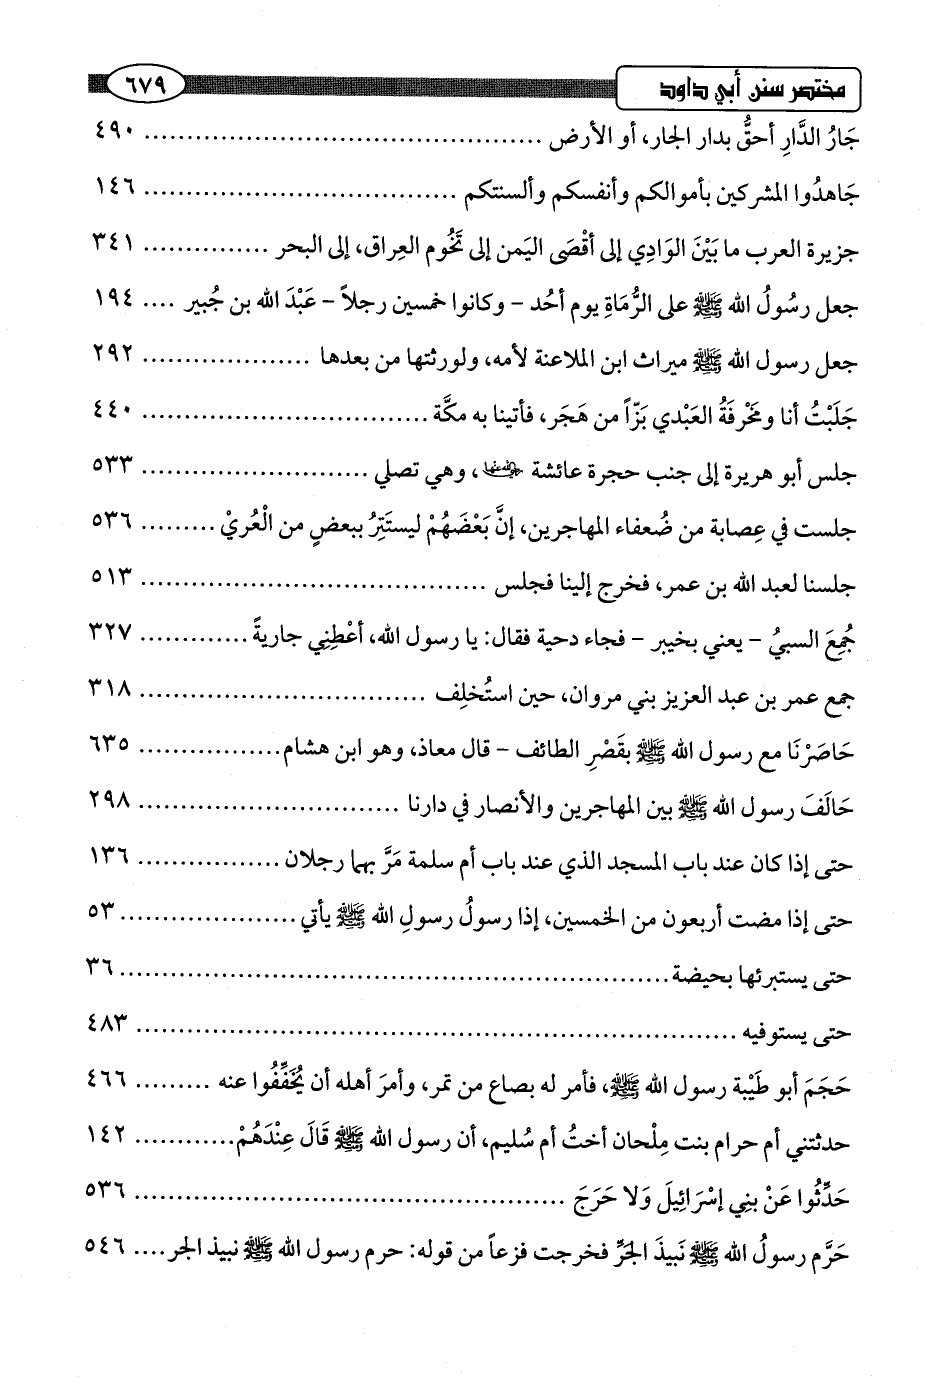 مختصر سنن أبي داود ٦٧٩
جَارُ الدَّارِ أحقُّ بدار الجار، أو الأرض ............................................... ٤٩٠
جَاهدُوا المشركين بأموالكم وأنفسكم وألسنتكم ..................................... ١٤٦
جزيرة العرب ما بَيْنَ الوَادِي إلى أقْصَى اليَمن إلى تَخُوم العِراق، إلى البحر ............... ٣٤١
جعل رسُولُ الله ﷺ على الرُّمَاةِ يوم أحُد - وكانوا خمسين رجلاً - عَبْدَ الله بن جُبير .... ١٩٤
جعل رسول الله ﷺ ميراث ابن الملاعنة لأمه، ولورثتها من بعدها .................... ٢٩٢
جَلَبْتُ أنا ومَخْرفَةُ العَبْدي بَزّاً من هَجَر، فأتينا به مكَّة .................................. ٤٤٠
جلس أبو هريرة إلى جنب حجرة عائشة رضي الله عنها، وهي تصلي ........................... ٥٣٣
جلست في عِصابة من ضُعفاء المهاجرين، إنَّ بَعْضَهُمْ ليستَتِرُ ببعضٍ من الْعُريْ ......... ٥٣٦
جلسنا لعبد الله بن عمر، فخرج إلينا فجلس ......................................... ٥١٣
جُمِعَ السبيُ - يعني بخيبر - فجاء دحية فقال: يا رسول الله، أعْطِنِي جاريةً ............. ٣٢٧
جمع عمر بن عبد العزيز بني مروان، حين استُخلِف .................................. ٣١٨
حَاصَرْنَا مع رسول الله ﷺ بقَصْرِ الطائف - قال معاذ، وهو ابن هشام ................. ٦٣٥
حَالَفَ رسول الله ﷺ بين المهاجرين والأنصار في دارنا ............................... ٢٩٨
حتى إذا كان عند باب المسجد الذي عند باب أم سلمة مَرَّ بهما رجلان ................. ١٣٦
حتى إذا مضت أربعون من الخمسين، إذا رسولُ رسولِ الله ﷺ يأتي ..................... ٥٣
حتى يستبرئها بحيضة ................................................................. ٣٦
حتى يستوفيه ........................................................................ ٤٨٣
حَجَمَ أبو طَيْبة رسول الله ﷺ، فأمر له بصاع من تمر، وأمرَ أهله أن يُخَفِّفُوا عنه ......... ٤٦٦
حدثتني أم حرام بنت مِلْحان أختُ أم سُليم، أن رسول الله ﷺ قَالَ عِنْدَهُمْ ............ ١٤٢
حَدِّثُوا عَنْ بنِي إسْرَائِيلَ وَلا حَرَجَ .................................................. ٥٣٦
حَرَّم رسولُ الله ﷺ نَبيذَ الجَرِّ فخرجت فزعاً من قوله: حرم رسول الله ﷺ نبيذ الجر .... ٥٤٦